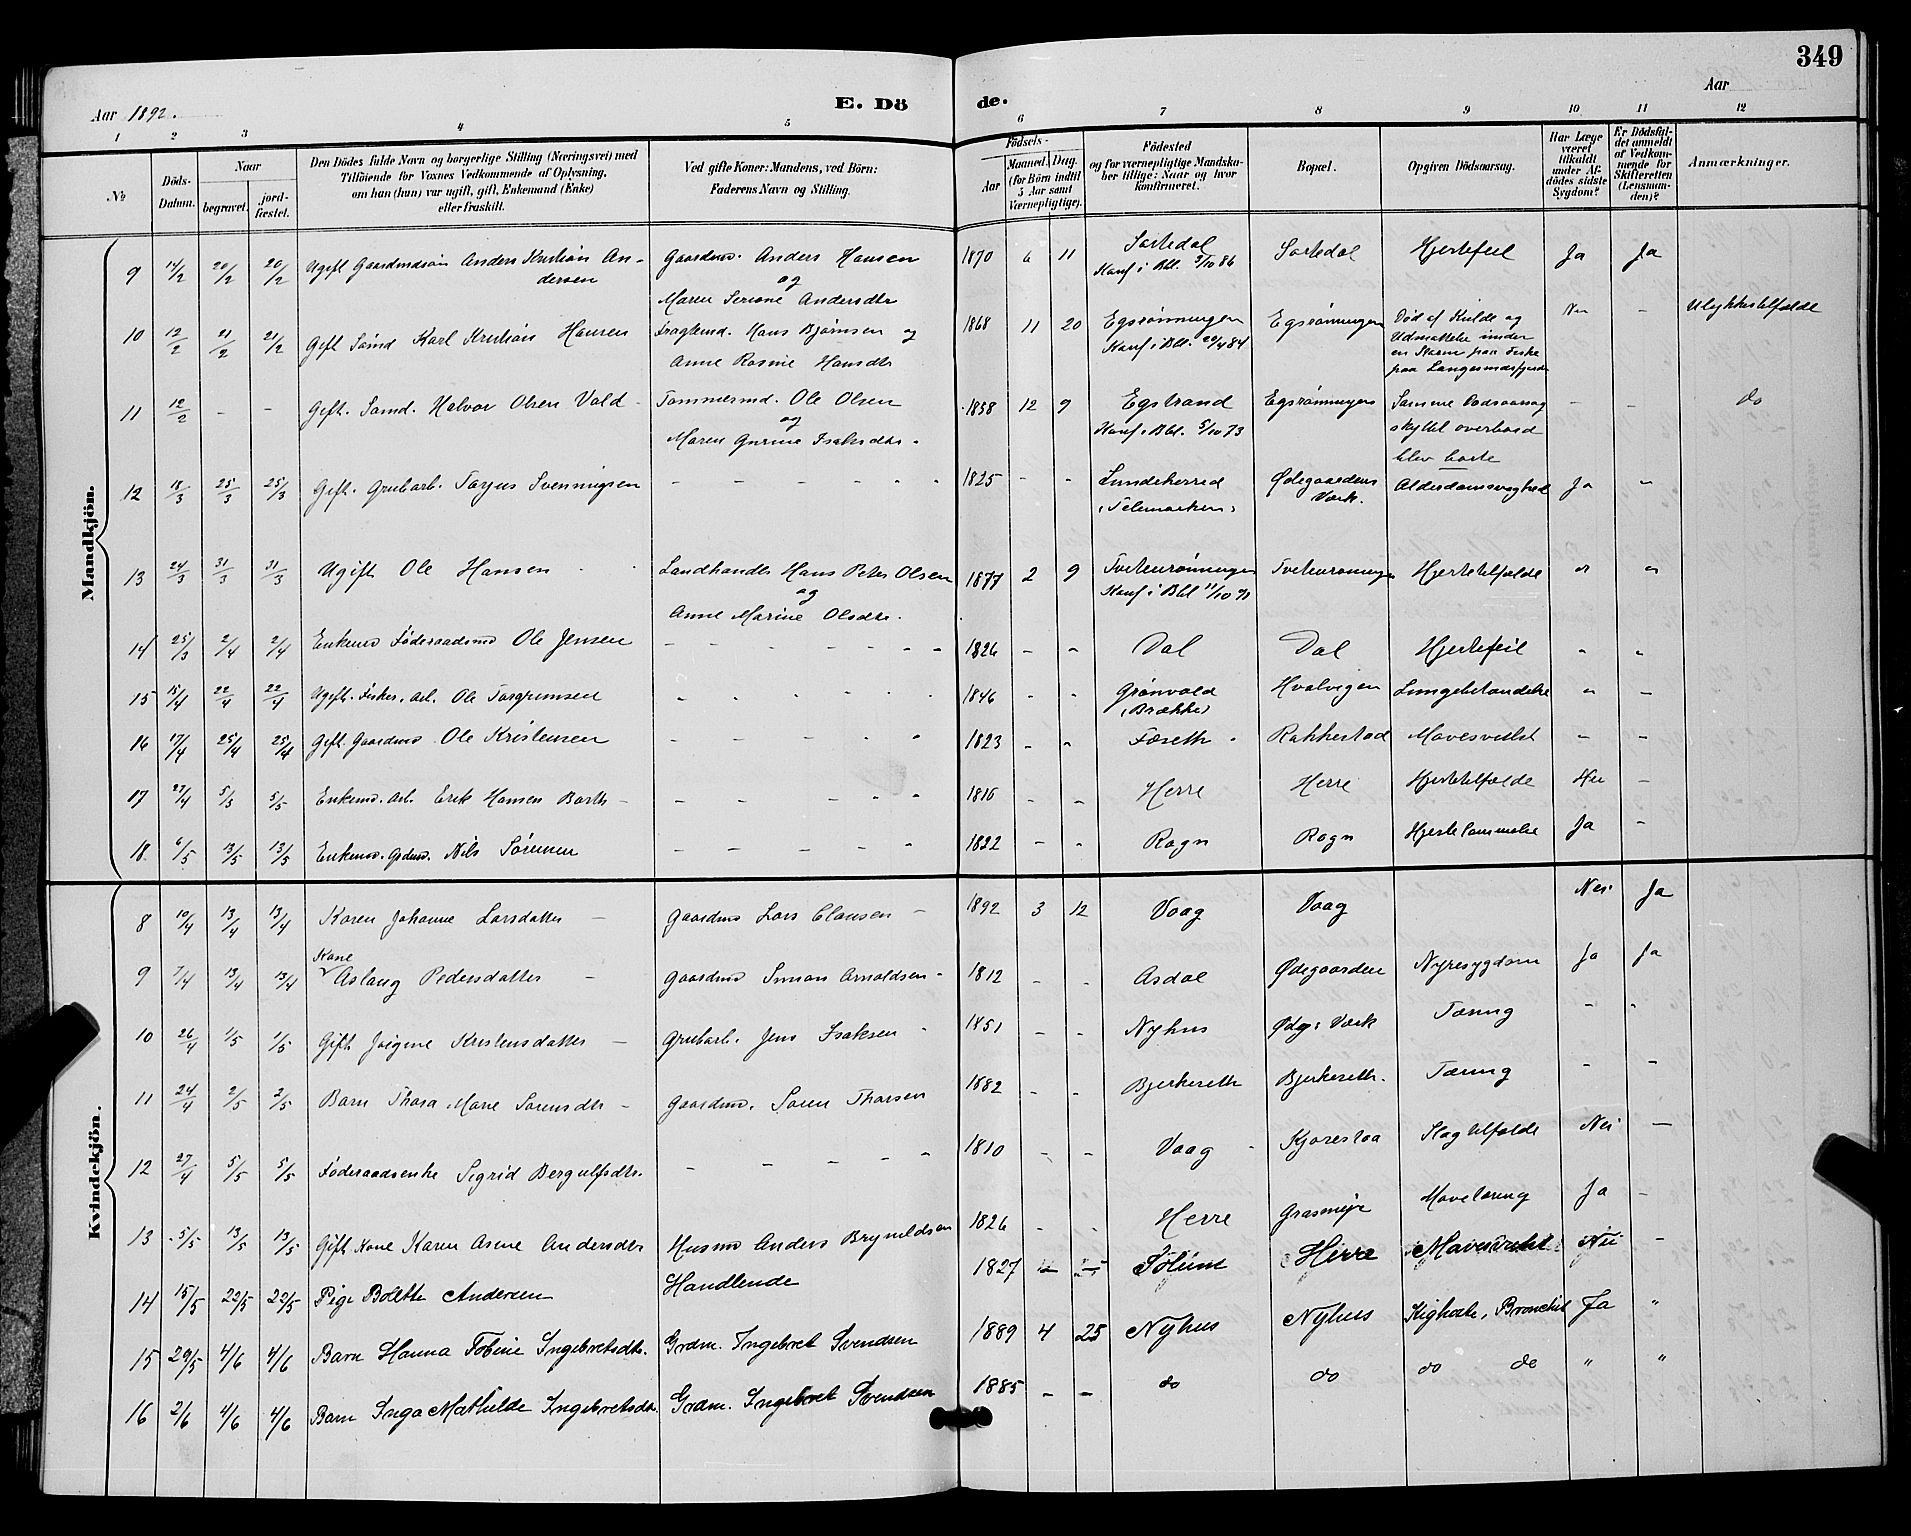 349
Aar 1892.
E. Dö de.
Aar
1 2 3 4 5 6 7 8 9 10 11 12
No
Döds-Datum.
Naar
begravet.
jord-fæstet.
Den Dödes fulde Navn og borgerlige Stilling (Næringsvei) med
Tilföiende for Voxnes Vedkommende af Oplysning,
om han (hun) var ugift, gift, Enkemand (Enke)
eller fraskilt.
Ved gifte Koner: Mandens, ved Börn:
Faderens Navn og Stilling.
Födsels-
Aar
Maaned. Dag.
(for Börn indtil
5 Aar samt
Værnepligtige).
Födested
og for værnepligtige Mandska-
ber tillige: Naar og hvor
konfirmeret.
Bopæl.
Opgiven Dödsaarsag.
Har Læge
været
tilkaldt
under Af-
dödes sidste
Sygdom?
Er Dödsfal-
det anmeldt
af Vedkom-
mende for
Skifteretten
(Lensman-
den)?
Anmærkninger.
Mandkjön.
9 14/2 20/2 20/2 Ugift Gaardmdsøn Anders Kristian An- Gaardmd. Anders Hansen 1870 6 11 Sortedal Sortedal Hjertefeil Ja Ja
dersen og Konf i Bbl. 3/10 86
Maren Andersdtr
10 12/2 21/2 21/2 Gift Sømd Karl Kristian Hansen Fragtemd. Hans Bjørnsen og 1868 11 20 Egsrønningen Egsrønningen Død af Kulde og Nei - Ulykkestilfælde
Anne Rosine Hansdtr Konf i Bbl. 20/4 84 Udmattelse under
en Storm paa Fiske
paa Langesundsfjorden
11 12/2 - - Gift. Sømd. Halvor Olsen Vold Tømmermd. Ole Olsen 1858 12 9 Egstrand Egsrønningen Samme Dødsaarsag - - do
og Konf. i Bbl. 5/10 73 skyllet overbord
Maren Gurine Isaksdtr. blev borte
12 18/3 25/3 25/3 Gift. Grubarb. Torjus Svenningsen - - - - - 1825 - - Lundeherred Ødegaardens Alderdomssvaghed Ja "
(Telemarken) Værk.
13 24/3 31/3 31/3 Ugift Ole Hansen Landhandler Hans Peter Olsen 1877 2 9 Tvetenrønningen Tvetenrønningen Hjertetilfælde " "
og Konf i Bbl 11/10 91
Anne Marine Olsdtr.
14 25/3 2/4 2/4 Enkemd Føderaadsmd Ole Jensen - - - - - - 1826 - - Dal Dal Hjertefeil " "
15 15/4 22/4 22/4 Ugift. Fisker. arb. Ole Torgrimsen - - - - - - 1846 - - Grønvold Hvalvigen Lungebetændelse " -
(Brække)
16 17/4 25/4 25/4 Gift. Gaardmd. Ole Kristensen - - - - - 1823 - - Foseth Rakkestad Mavesvulst - -
17 27/4 5/5 5/5 Enkemd. arb. Erik Hansen Barth - - - - - - 1816 - - Herre Herre Hjertetilfælde Nei -
18. 6/5 13/5 13/5 Enkemd. Grdmd. Nils Sørensen - - - - - 1822 - - Rogn Rogn Hjertelammelse Ja -
Kvindekjön.
8 10/4 13/4 13/4 Karen Johanne Larsdatter - Gaardmd Lars Clausen - 1892 3 12 Vaag Vaag Nei Ja
Kone
9 7/4 13/4 13/4 Aslaug Pedersdatter - Gaardmd Simon Arnoldsen - 1812 - - Asdal Ødegaarden Nyresygdom Ja Ja
10 26/4 1/5 1/5 Gift Kristensdatter - Grubarb. Jens Isaksen - 1851 - - Nyhus Ødgs Værk Tæring - -
11 24/4 2/5 2/5 Barn Thora Marie Sørensdtr - Gaardmd. Søren Thorsen 1882 - - Bjerkeseth Bjerkeseth. Tæring - -
12 27/4 5/5 5/5 Føderaadsenke Sigrid Bergulfsdtr. - - - - - 1810 - - Vaag Kjørestaa Slagtilfælde Nei -
13 5/5 13/5 13/5 Gift Kone Karen Asine Andersdtr Husmd Anders Brynildsen 1826 - - Herre Grasmyr Mavetæring Ja -
14 15/5 22/5 22/5 Pige Bolette Andersen Handlende 1827 Sølum Herre Mavesvulst Nei -
15 29/5 4/6 4/6 Barn Hanna Tobine Ingebretsdtr. Grdm. Ingebret Svendsen 1889 4 25 Nyhus Nyhus Kighoste, Bronchit Ja "
16 2/6 4/6 4/6 Barn Inga Mathilde Ingebretsdtr. Grdm. Ingebret Svendsen 1885 - - do do do do " "